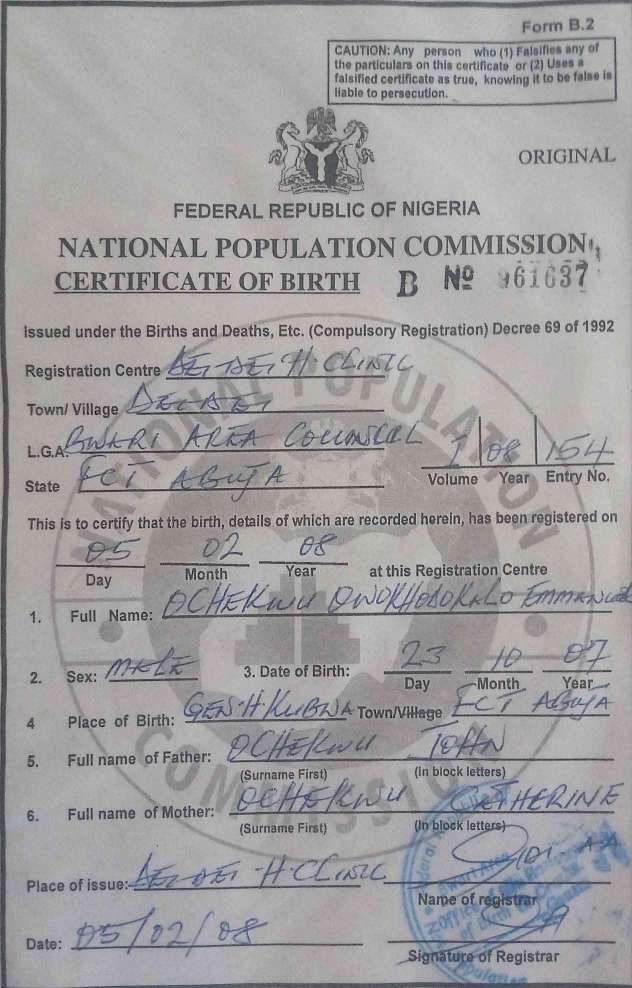 Form B.2
CAUTION: Any person who (1) Falsifies any of
the particulars on this certificate or (2) Uses a
falsified certificate as true, knowing it to be false is
liable to persecution.
ORIGINAL
FEDERAL REPUBLIC OF NIGERIA
NATIONAL POPULATION COMMISSION
CERTIFICATE OF BIRTH B Nº 961637
Issued under the Births and Deaths, Etc. (Compulsory Registration) Decree 69 of 1992
Registration Centre DEI DEI H. CLINIC
Town/ Village DEI DEI
L.G.A. BWARI AREA COUNCIL
1 08 154
State FCT ABUJA
Volume Year Entry No.
This is to certify that the birth, details of which are recorded herein, has been registered on
05 02 08
Day Month Year at this Registration Centre
1. Full Name: OCHEKWU Emmanuel
2. Sex: MALE 3. Date of Birth: 23 10 07
Day Month Year
4 Place of Birth: GEN-H KUBWA Town/Village FCT ABUJA
5. Full name of Father: OCHEKWU JOHN
(Surname First) (In block letters)
6. Full name of Mother: OCHEKWU CATHERINE
(Surname First) (In block letters)
Place of issue: DEI DEI H. CLINIC
Name of registrar
Date: 05/02/08
Signature of Registrar
NATIONAL POPULATION
COMMISSION